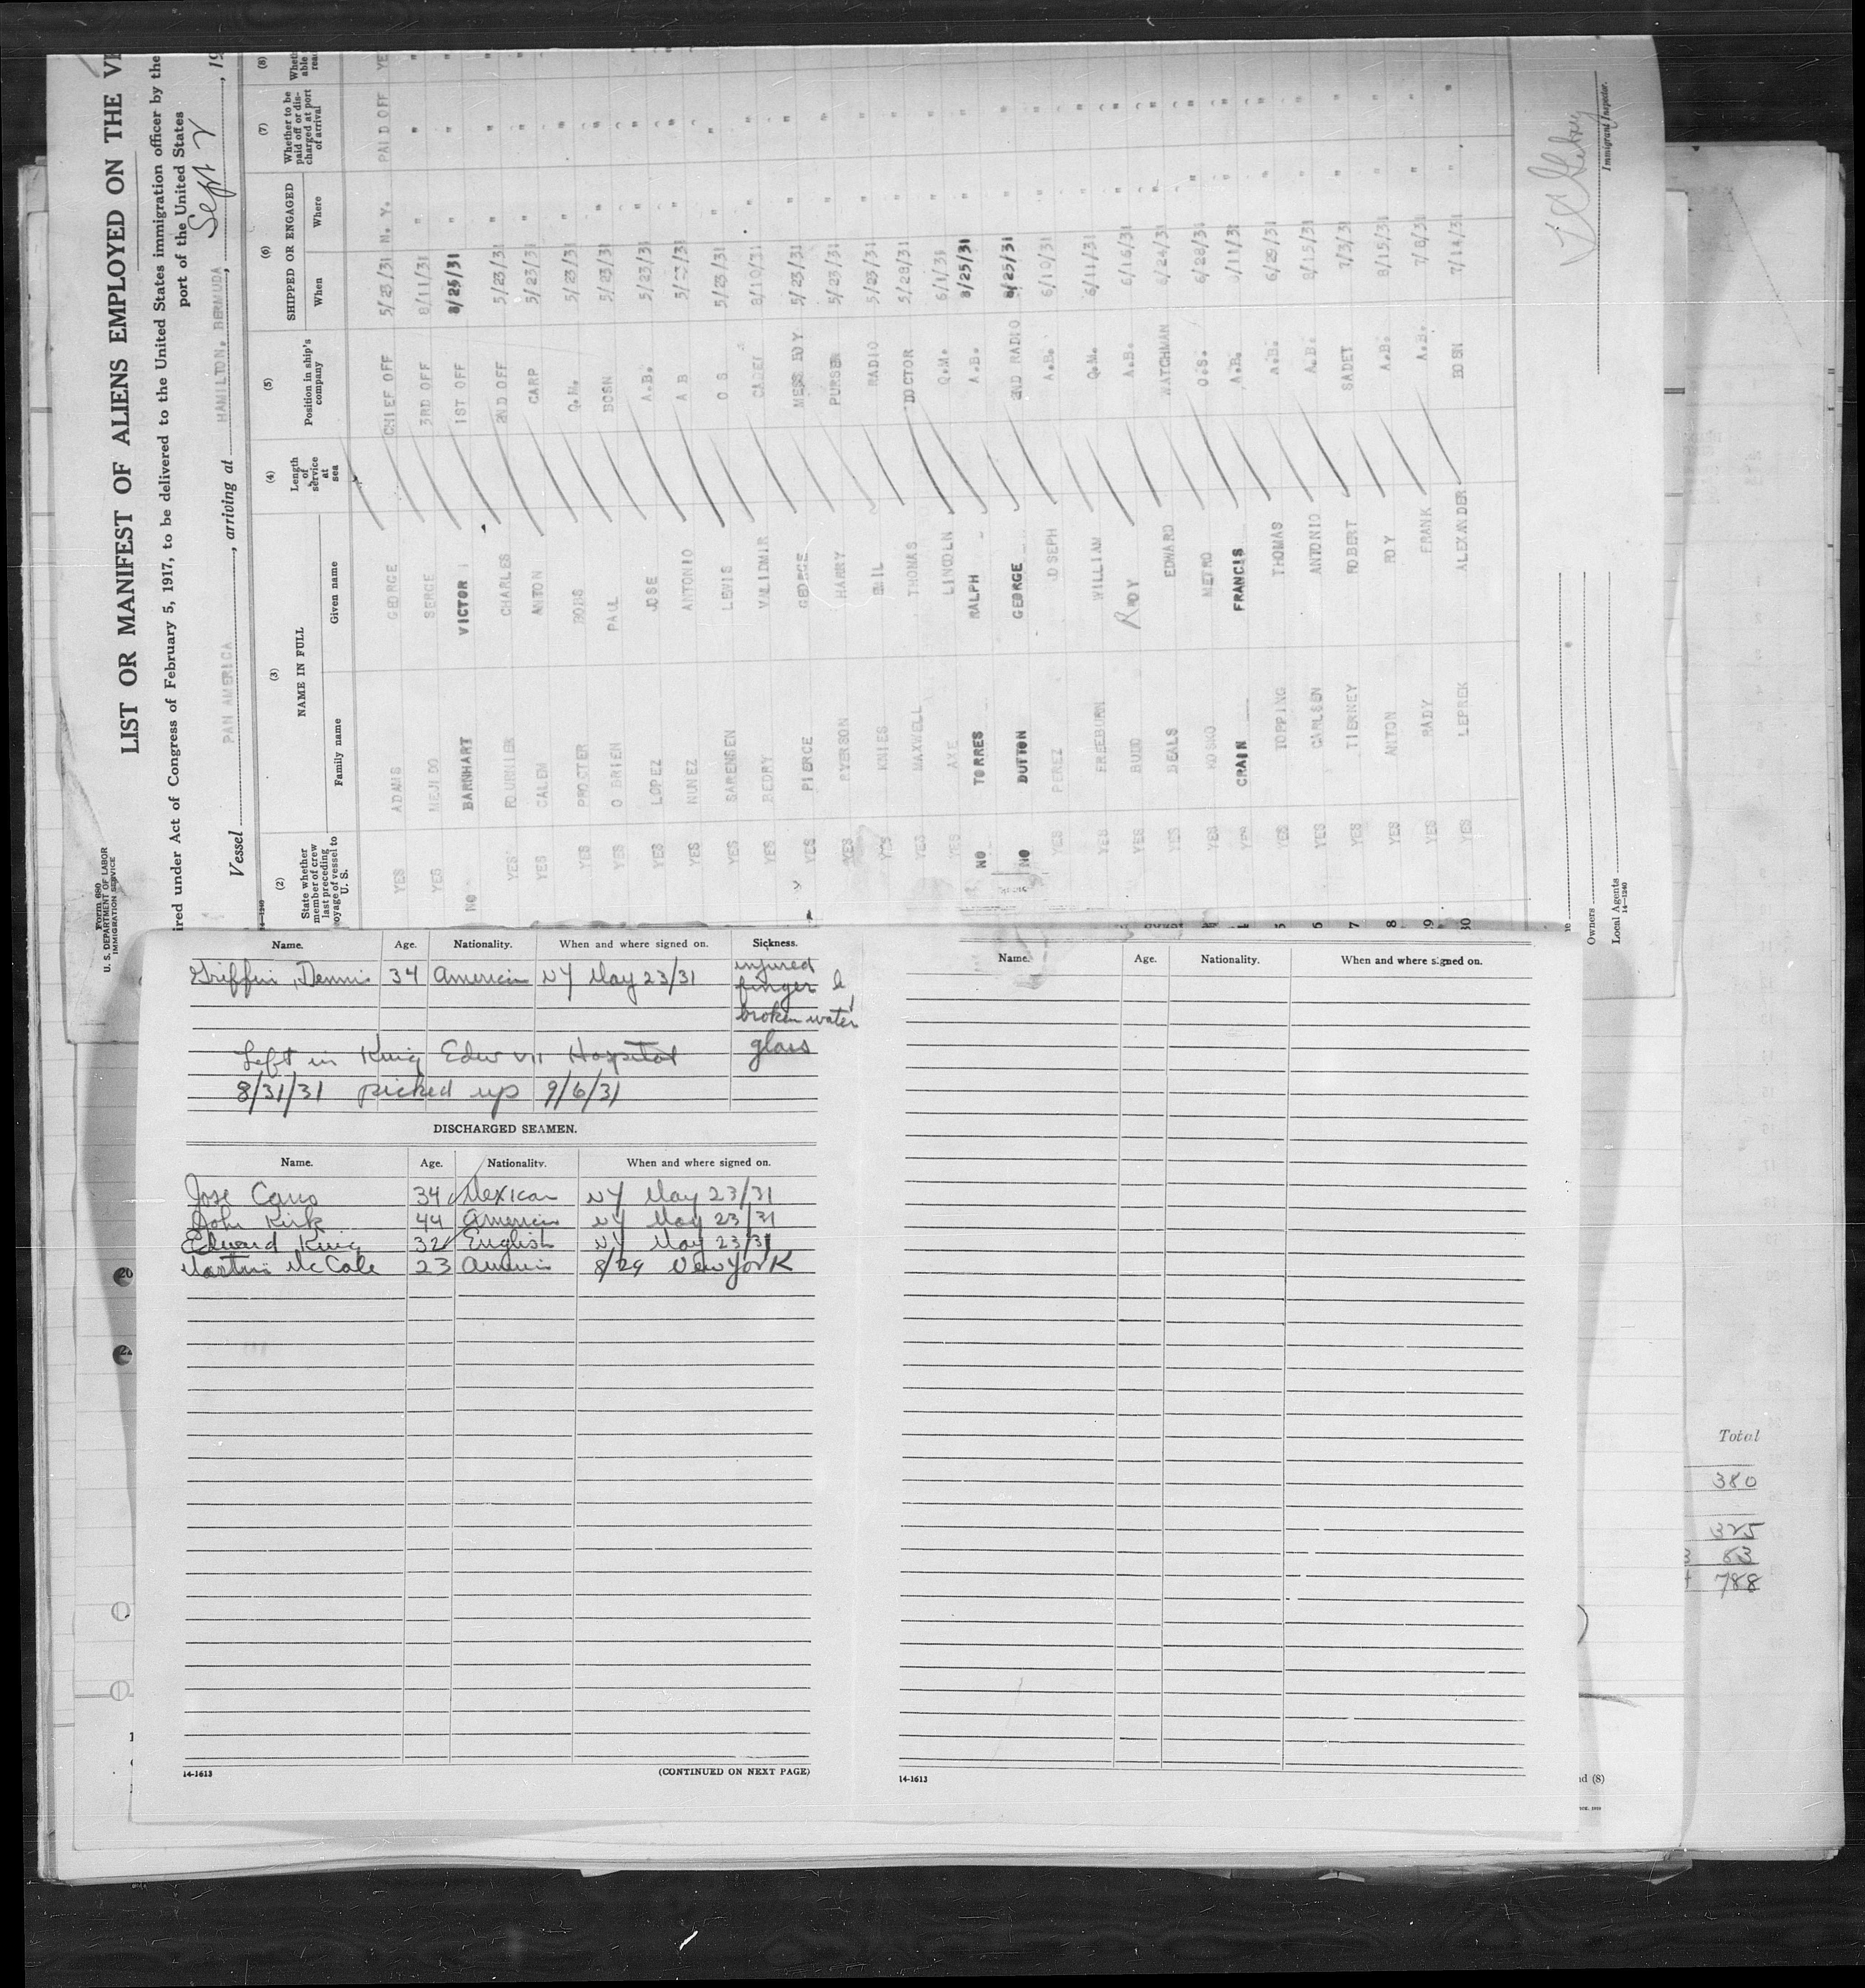 Form 680
U. S. DEPARTMENT OF LABOR
IMMIGRATION SERVICE
LIST OR MANIFEST OF ALIENS EMPLOYED ON THE
ired under Act of Congress of February 5, 1917, to be delivered to the United States immigration officer by the
port of the United States
Vessel PAN AMERICA, arriving at HAMILTON, BERMUDA, Sept 2, 19
14-1240
(2) (3) (4) (5) (6) (7) (8)
State whether member of crew last preceding voyage of vessel to U. S.
NAME IN FULL
Family name Given name
Length of service at sea
Position in ship's company
SHIPPED OR ENGAGED
When Where
Whether to be paid off or discharged at port of arrival
YES ADAMS GEORGE CHIEF OFF 5/23/31 N. Y. PAID OFF YE
YES MEJLDO SERGE 3RD OFF 8/11/31 " " "
NO BARNHART VICTOR 1ST OFF 8/25/31 " " "
YES FOURNIER CHARLES 2ND OFF 5/23/31 " " "
YES CALEM ANTON CARP 5/23/31 " " "
YES PROCTER BORS Q.M. 5/23/31 " " "
YES O BRIEN PAUL BOSN 5/23/31 " " "
YES LOPEZ JOSE A.B. 5/23/31 " " "
YES NUNEZ ANTONIO A B 5/23/31 " " "
YES SARENSEN LEWIS O S 5/23/31 " " "
YES REDRY VALIDMIR CADET 8/10/31 " " "
YES PIERCE GEORGE MESS BOY 5/23/31 " " "
YES RYERSON HARRY PURSER 5/23/31 " " "
YES KNIES EMIL RADIO 5/23/31 " " "
YES MAXWELL THOMAS DOCTOR 5/28/31 " " "
YES AXE LINCOLN Q.M. 6/1/31 " " "
NO TORRES RALPH A.B. 8/25/31 " " "
NO DUTTON GEORGE 2ND RADIO 8/25/31 " " "
YES PEREZ JOSEPH A.B. 6/10/31 " " "
YES FREEBURN WILLIAM Q.M. 6/11/31 " " "
YES BUDD ROY A.B. 6/16/31 " " "
YES BEALS EDWARD WATCHMAN 6/24/31 " " "
YES KOSKO METRO O.S. 6/28/31 " " "
YES CRAIN FRANCIS A.B. 6/11/31 " " "
YES TOPPING THOMAS A.B. 6/29/31 " " "
YES CARLSEN ANTONIO A.B. 8/15/31 " " "
YES TIERNEY ROBERT SADET 7/3/31 " " "
YES ANTON ROY A.B. 8/15/31 " " "
YES RADY FRANK A.B. 7/8/31 " " "
YES LEPREK ALEXANDER BOSN 7/14/31 " " "
Immigrant Inspector.
Owners
Local Agents
14-1240
Name. Age. Nationality. When and where signed on. Sickness.
Griffin, Dennis 34 American NY May 23/31 injured
finger
broken water
glass
Left in King Edw VII Hospital
8/31/31 picked up 9/6/31
DISCHARGED SEAMEN.
Name. Age. Nationality. When and where signed on.
Jose Cano 34 Mexican NY May 23/31
John Kirk 44 American NY May 23/31
Edward King 32 English NY May 23/31
Martin McCale 23 American 8/29 New York
14-1613 (CONTINUED ON NEXT PAGE)
Name. Age. Nationality. When and where signed on.
14-1613
Total
380
325
83
788